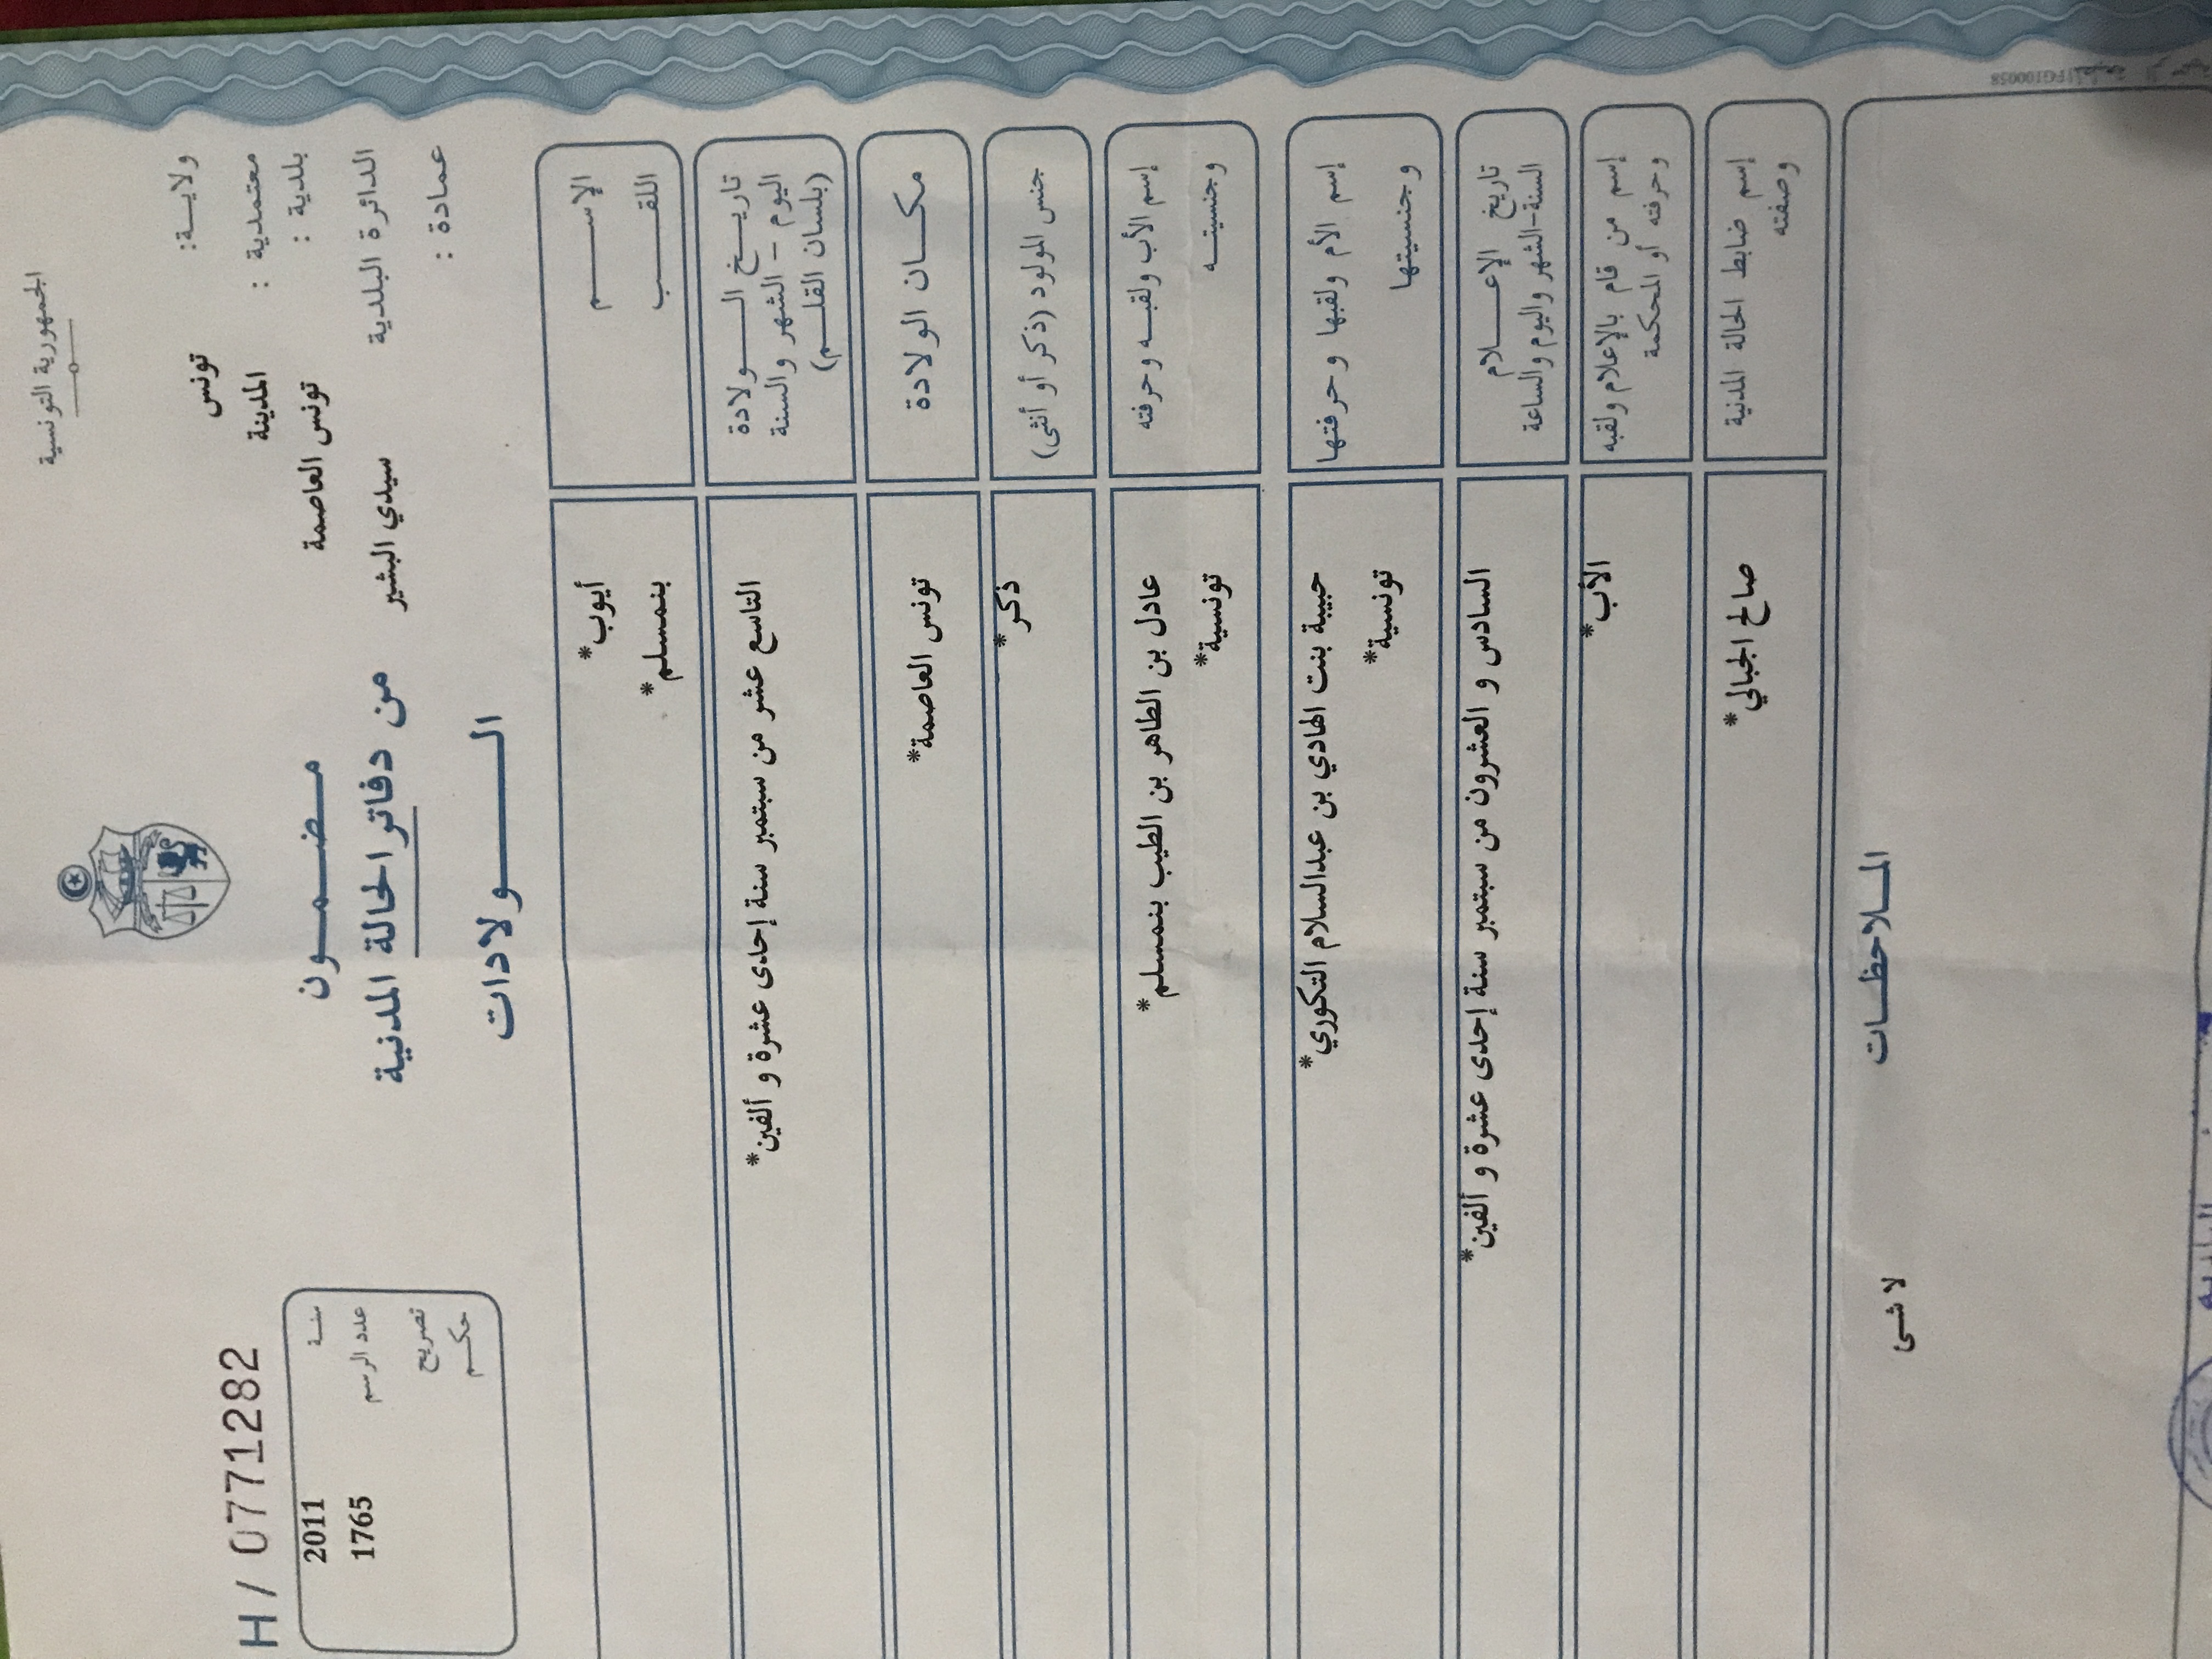 الجمهورية التونسية
ولايــة: تونس
معتمدية : المدينة
بلدية : تونس العاصمة
الدائرة البلدية سيدي البشير
عمادة :
مـضـمــون
من دفاتر الحالة المدنية
الـــولادات
H / 0771282
سنـة 2011
عدد الرسم 1765
تصريح
حكـم
الإســـم أيوب*
اللقـــب بنمسلم*
تاريـــخ الـــولادة التاسع عشر من سبتمبر سنة إحدى عشرة و ألفين*
اليوم - الشهر والسنة
(بلسان القلـــم)
مكـــان الولادة تونس العاصمة*
جنس المولود (ذكر أو أنثى) ذكر*
إسم الأب ولقبـه وحرفته عادل بن الطاهر بن الطيب بنمسلم*
وجنسيتـه تونسية*
إسم الأم ولقبها وحرفتها حبيبة بنت الهادي بن عبدالسلام التكوري*
وجنسيتها تونسية*
تاريخ الإعــــلام السادس و العشرون من سبتمبر سنة إحدى عشرة و ألفين*
السنة-الشهر واليوم والساعة
إسم من قام بالإعلام ولقبه الأب*
وحرفته أو المحكمة
إسم ضابط الحالة المدنية صالح الجبالي*
وصفته
المـلاحظـات
لا شئ